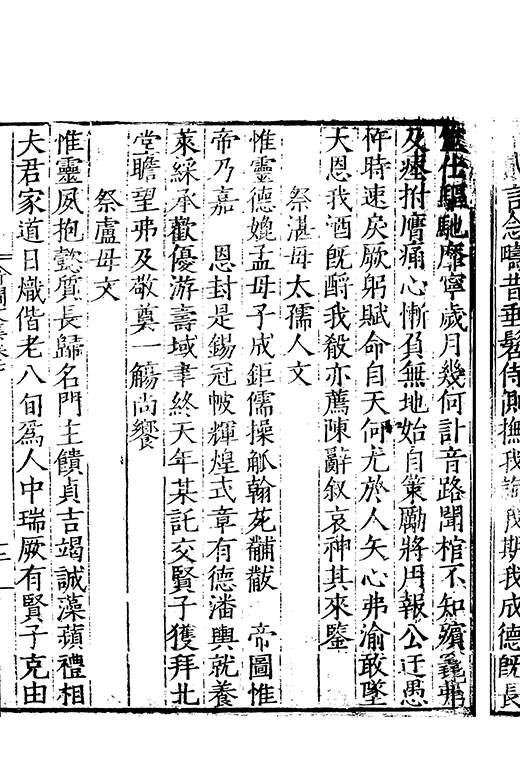 言念疇昔垂髫侍側撫我誨我期我成德既長
仕驅馳靡寧歲月幾何訃音路聞棺不知殯窆弗
及痺拊膺痛心慚負無地始自策勵將用報公迂愚
忤時速戾厥躬賦命自天何尤於人矢心弗渝敢墜
大恩我酒既酹我殽亦薦陳辭叙哀神其來鑒
祭湛母太孺人文
惟靈德媲孟母子成鉅儒操觚翰苑黼黻 帝圖惟
帝乃嘉 恩封是錫冠帔輝煌式章有德潘輿就養
萊綵承歡優游壽域聿終天年某託交賢子獲拜北
堂瞻望弗及敬奠一觴尚饗
祭盧母文
惟靈夙抱懿質長歸名門主饋貞吉竭誠藻蘋禮相
夫君家道日熾偕老八旬爲人中瑞厥有賢子克由